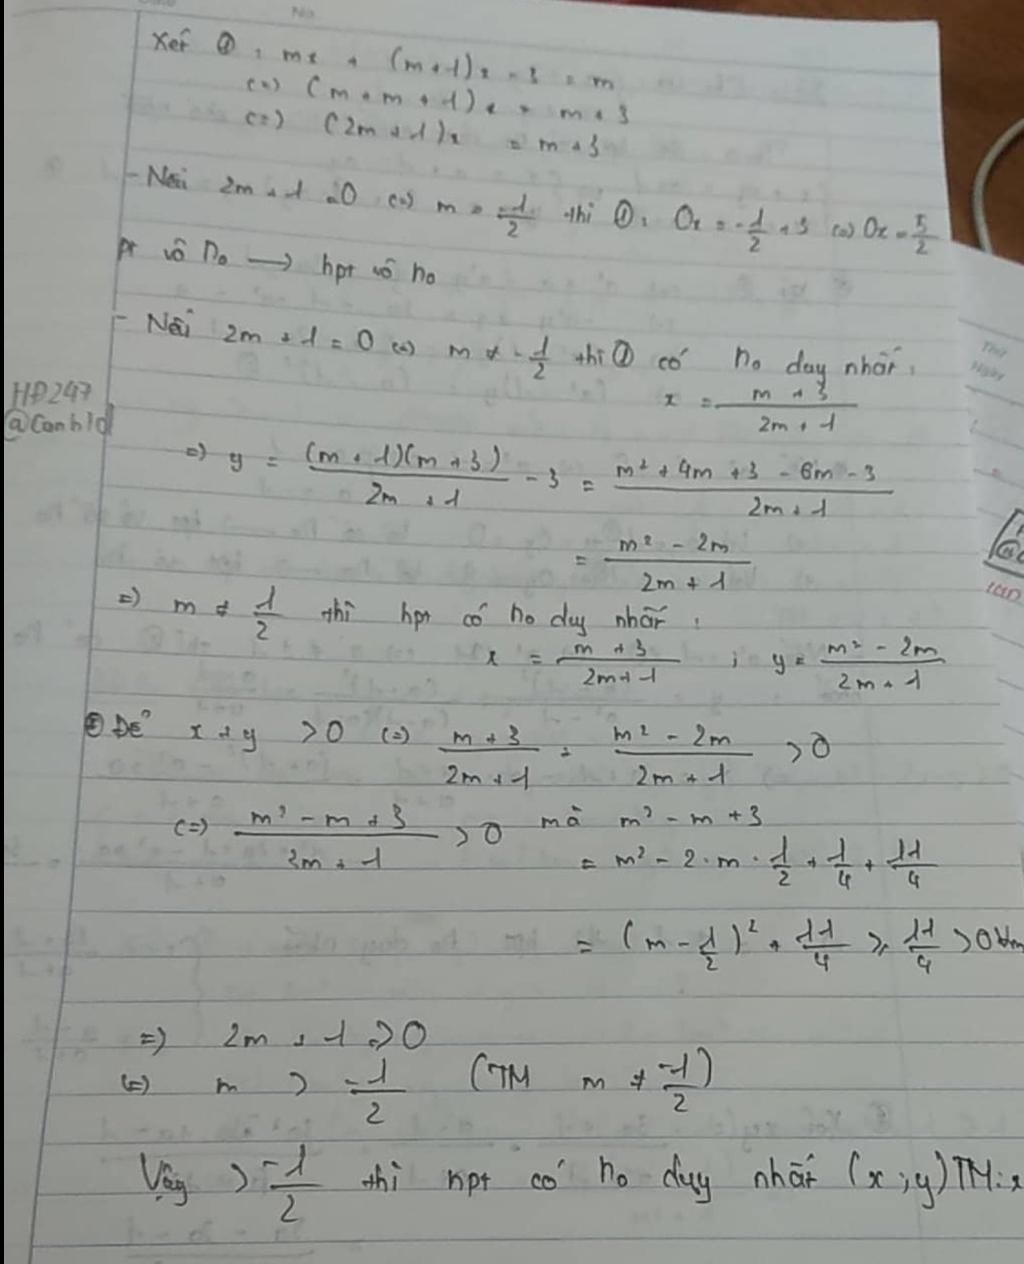 Xét ① : mx + (m+1)x - 3 = m
(=) (m + m + 1)x = m + 3
(=) (2m + 1)x = m + 3
- Nếu 2m + 1 = 0 (=) m = -1/2 thì ①: 0x = -1/2 + 3 (=) 0x = 5/2
pt vô n₀ → hpt vô n₀
- Nếu 2m + 1 = 0 (=) m ≠ -1/2 thì ① có n₀ duy nhất:
x = (m + 3)/(2m + 1)
HĐ247
@Canh1d
=) y = (m + 1)(m + 3)/(2m + 1) - 3 = (m² + 4m + 3 - 6m - 3)/(2m + 1)
= (m² - 2m)/(2m + 1)
=) m ≠ 1/2 thì hpt có n₀ duy nhất:
x = (m + 3)/(2m + 1) ; y = (m² - 2m)/(2m + 1)
Để x + y > 0 (=) (m + 3)/(2m + 1) = (m² - 2m)/(2m + 1) > 0
(=) (m² - m + 3)/(2m + 1) > 0 mà m² - m + 3
= m² - 2·m·1/2 + 1/4 + 11/4
= (m - 1/2)² + 11/4 ≥ 11/4 > 0 ∀m
=) 2m + 1 > 0
(=) m > -1/2 (TM m ≠ -1/2)
Vậy > -1/2 thì hpt có n₀ duy nhất (x; y) TM: x